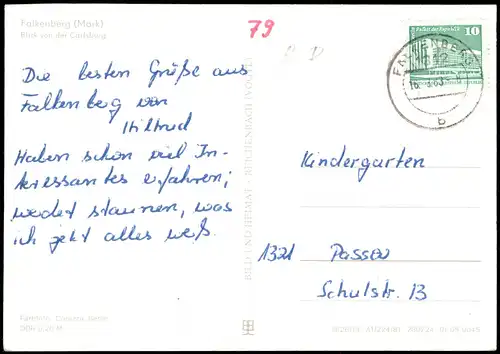 Falkenberg (Mark)
Blick von der Carlsburg
79
Palast der Republik
10
DDR
FALKENBERG
b
Die besten Grüße aus
Falkenberg von
Hiltrud
Haben schon viel In-
teressantes erfahren;
werdet staunen, was
ich jetzt alles weiß.
Kindergarten
1321 Passow
Schulstr. 13
BILD UND HEIMAT · REICHENBACH (VOGTL)